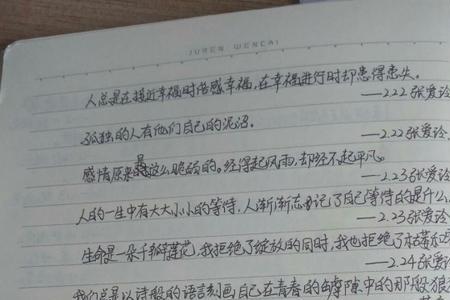 JUREN WENCAI
人总是在接近幸福时倍感幸福,在幸福进行时却患得患失。
——2.22张爱玲
孤独的人有他们自己的泥沼。
——2.22张爱玲
感情原来是这么脆弱的。经得起风雨,却经不起平凡。
——2.23张爱玲
人的一生中有大大小小的等待,人渐渐忘记了自己等待的是什么
——2.23张爱玲
生命是一朵千瓣莲花,我拒绝了绽放的同时,我也拒绝了枯萎
——2.24张爱
我们总是以诗般的语言刻画自己在青春的罅隙中的那段狼